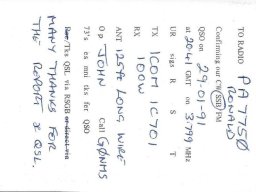 TO RADIO PA 7750
RONALD
Confirming our CW/SSB/FM
QSO on 29-01-91
at 2042 GMT on 3.799 MHz
UR sigs R S T
TX ICOM IC701
RX 100W
ANT 125ft LONG WIRE
Op JOHN Call G0NMS
73's es mni tks fer QSO
Pse/Tks QSL via RSGB or direct via
MANY THANKS FOR
THE REPORT & QSL.